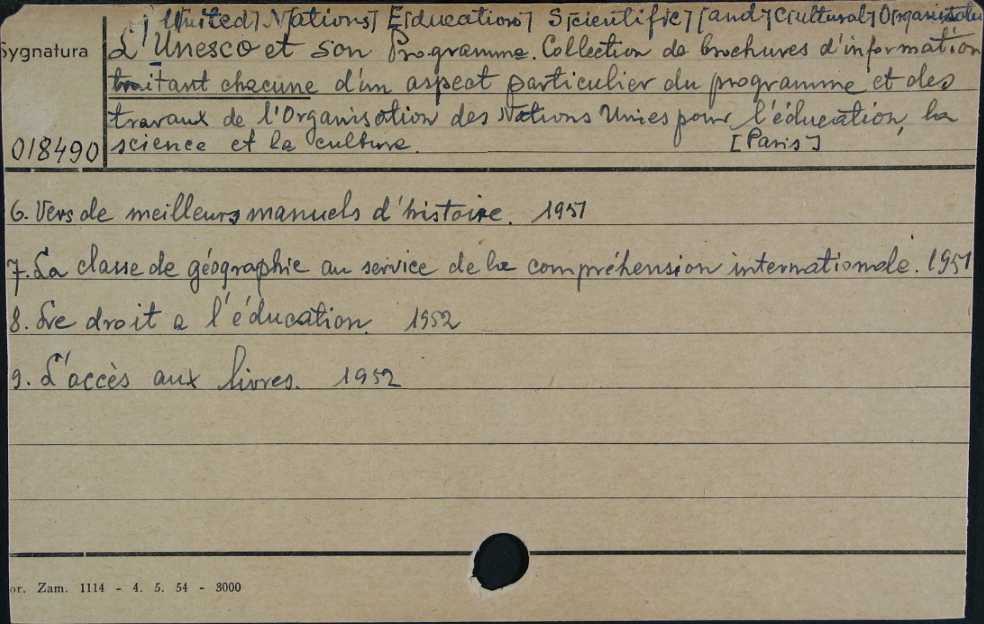 U[nited] N[ations] E[ducation] S[cientific] [and] C[ultural] O[rganisation
Sygnatura
L'Unesco et son Programme. Collection de brochures d'information
traitant chacune d'un aspect particulier du programme et des
travaux de l'Organisation des Nations Unies pour l'éducation, la
018490
science et la culture. [Paris]
6. Vers de meilleurs manuels d'histoire. 1951
7. La classe de géographie au service de la compréhension internationale. 1951
8. Le droit a l'éducation. 1952
9. L'accès aux livres. 1952
or. Zam. 1114 - 4. 5. 54 - 8000